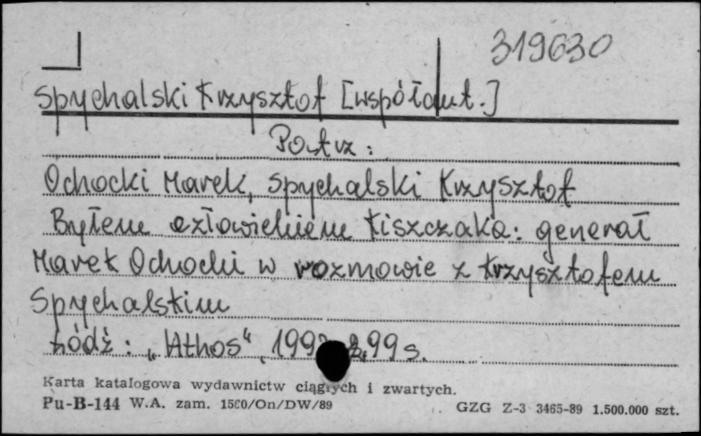 319630
Spychalski Krzysztof [współaut.]
Patrz:
Ochocki Marek, Spychalski Krzysztof
Byłem człowiekiem Kiszczaka: generał
Marek Ochocki w rozmowie z Krzysztofem
Spychalskim
Łódź: „Athos", 99 s.
Karta katalogowa wydawnictw ciągłych i zwartych.
Pu-B-144 W.A. zam. 1560/On/DW/89 GZG Z-3 3465-89 1.500.000 szt.